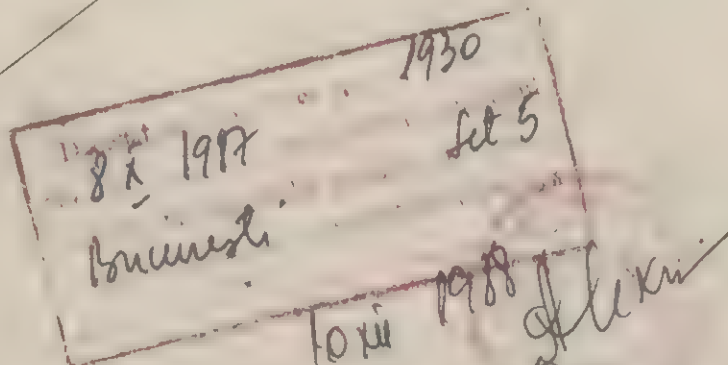 1930
8 X 1987
Set 5
București
10 XII 1988